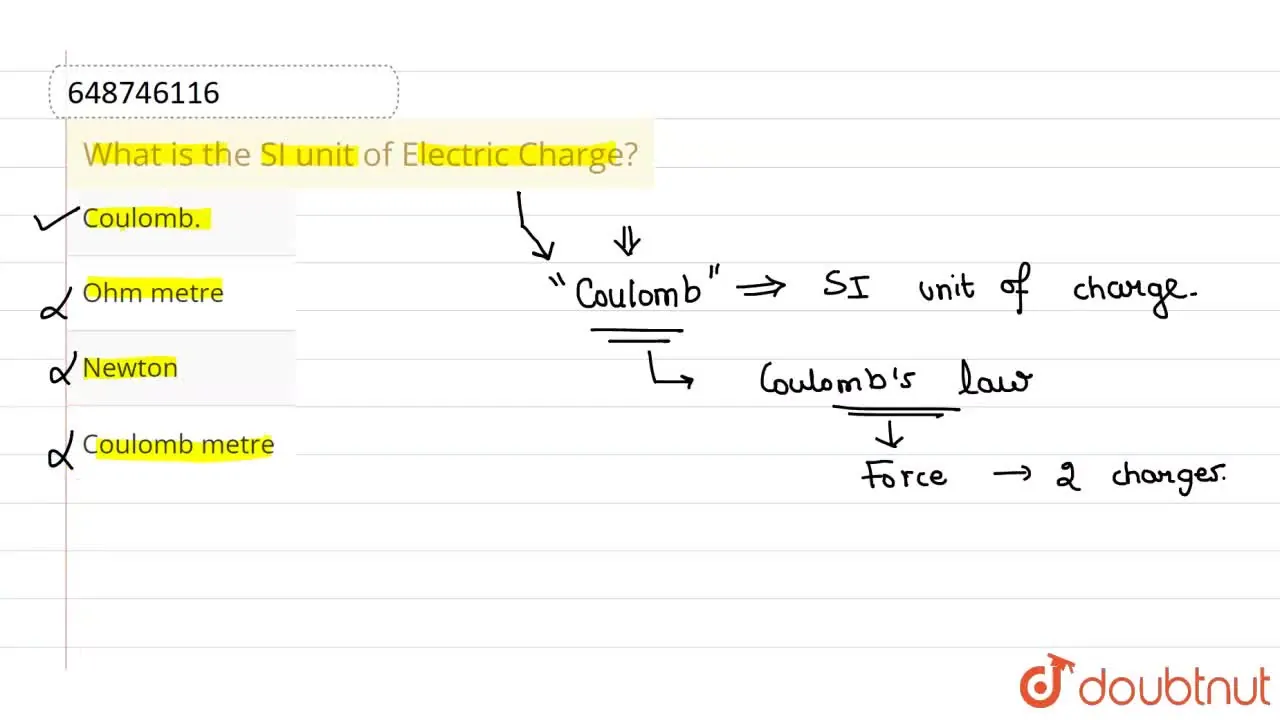 648746116
What is the SI unit of Electric Charge?
Coulomb.
Ohm metre
Newton
Coulomb metre
"Coulomb" ⇒ SI unit of charge.
Coulomb's law
Force → 2 charges.
doubtnut